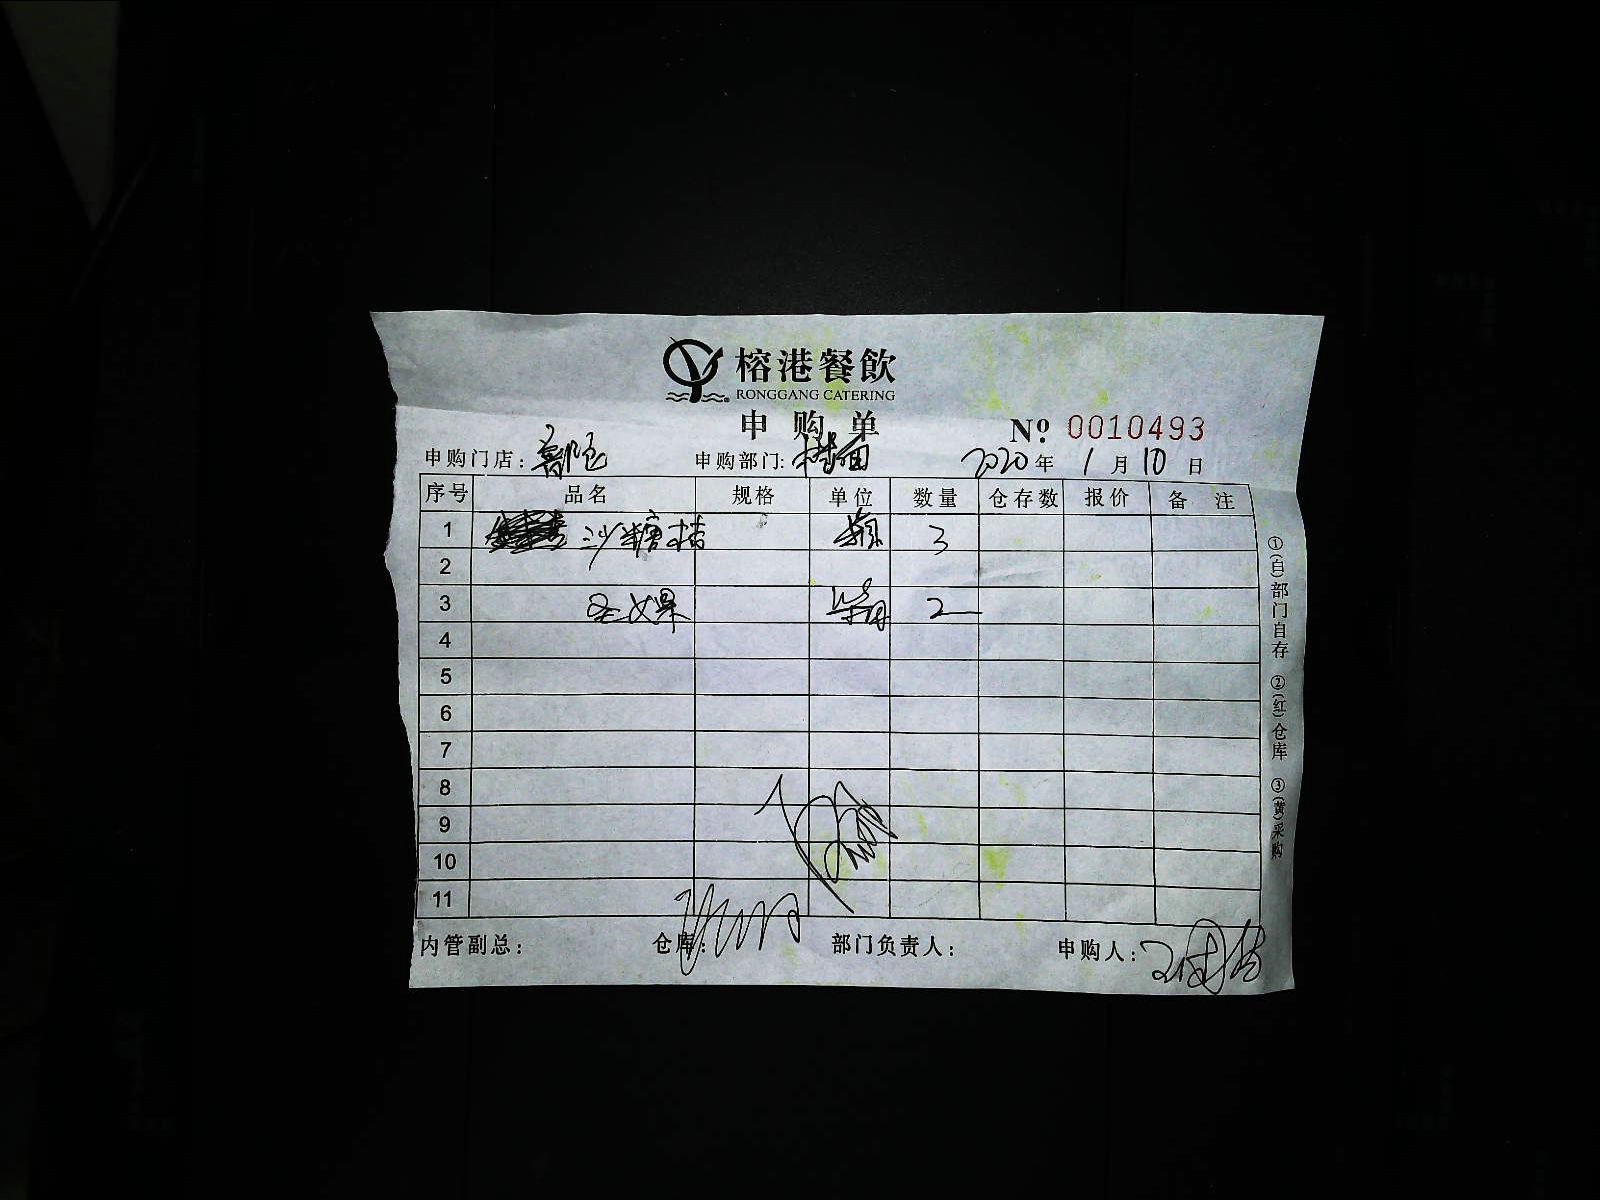 榕港餐飲
RONGGANG CATERING
申购单
№ 0010493
申购门店: 申购部门: 2020年1月10日
序号 品名 规格 单位 数量 仓存数 报价 备注
1 沙糖桔 3
2
3 圣女果 2
4
5
6
7
8
9
10
11
内管副总: 仓库: 部门负责人: 申购人:
①(白)部门自存 ②(红)仓库 ③(黄)采购